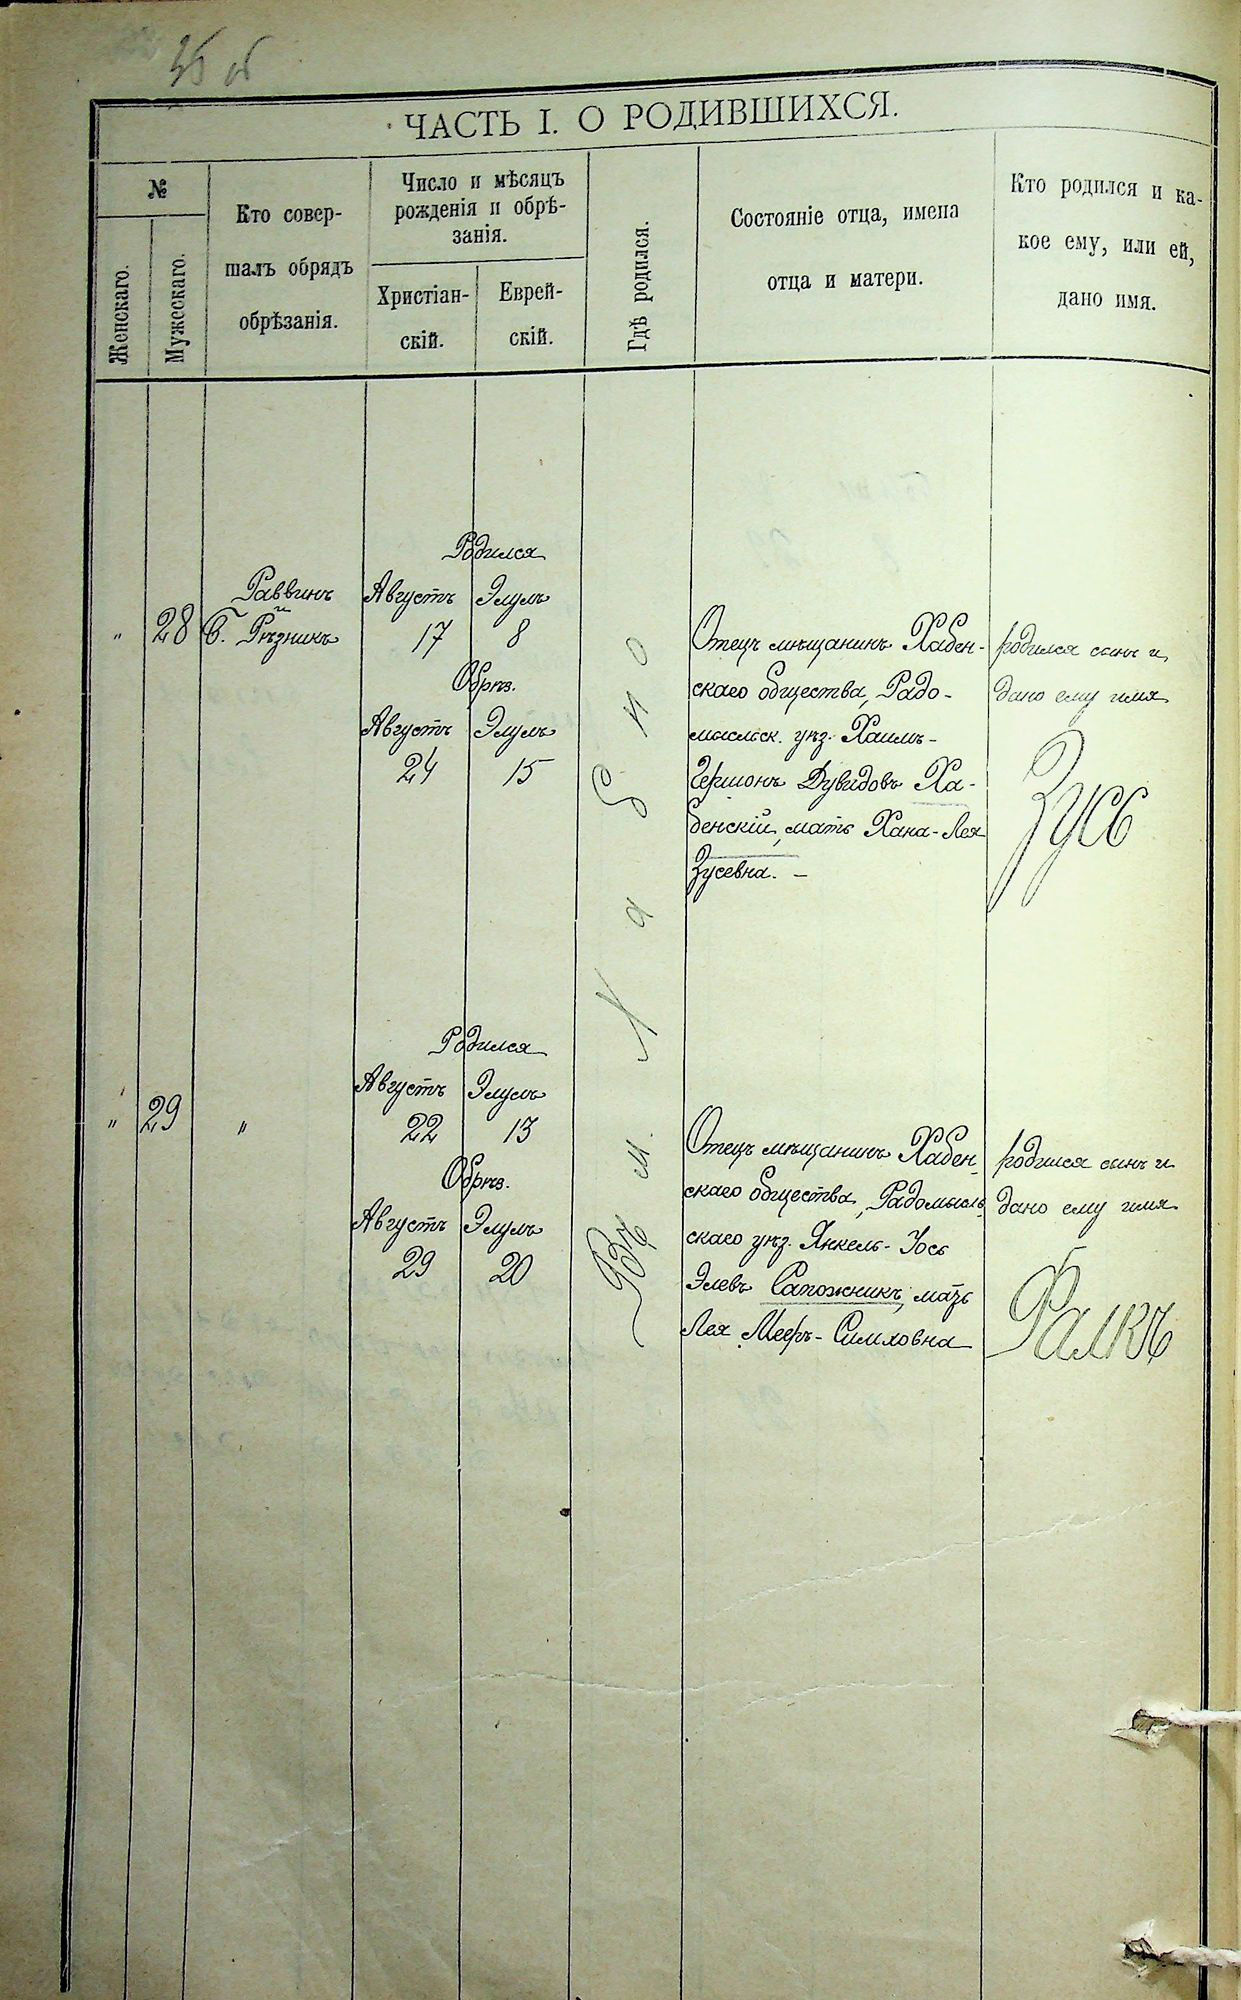 35 об
ЧАСТЬ I. О РОДИВШИХСЯ.
№
Женскаго.
Мужескаго.
Кто совер-
шалъ обрядъ
обрѣзанія.
Число и мѣсяцъ
рожденія и обрѣ-
занія.
Христіан-
скій.
Еврей-
скій.
Гдѣ родился.
Состояніе отца, имена
отца и матери.
Кто родился и ка-
кое ему, или ей,
дано имя.
"
28
Раввинъ
и
Б. Рѣзникъ
Родился
Августъ Элулъ
17 8
Обрѣз.
Августъ Элулъ
24 15
Въ м. Хабно
Отецъ мѣщанинъ Хабен-
скаго общества, Радо-
мысльск. уѣз. Хаимъ-
Гершонъ Дувидовъ Ха-
бенскій, мать Хана-Лея
Зусевна. –
родился сынъ и
дано ему имя
Зусь
"
29
"
Родился
Августъ Элулъ
22 13
Обрѣз.
Августъ Элулъ
29 20
Отецъ мѣщанинъ Хабен-
скаго общества, Радомысль-
скаго уѣз. Янкель-Іось
Элевъ Сапожникъ, мать
Лея Мееръ-Симховна
родился сынъ и
дано ему имя
Фалкъ